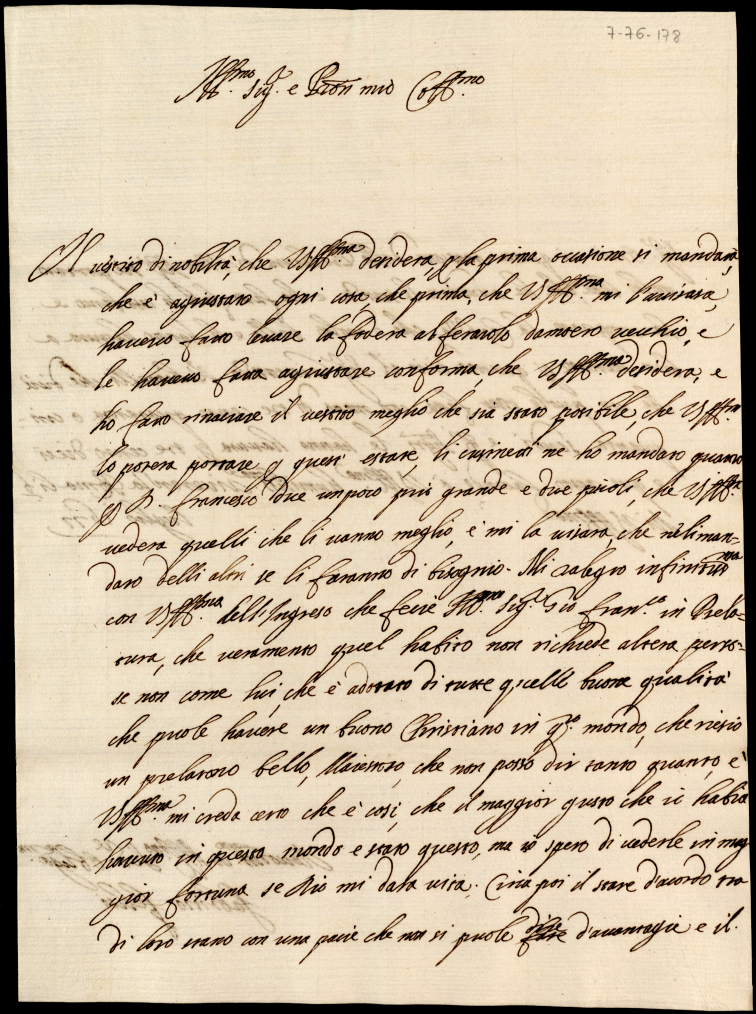 7-76-178
Ill.mo Sig.r e Pron mio Coll.mo
Il vestito di nobiltà, che V S Ill.ma desidera, p la prima occasione si mandarà
che è agiustato ogni cosa, che prima, che V S Ill.ma mi l'avisasa,
havevo fatto levare la fodera al feraiolo damsero vecchio, e
le havevo fatta agiustare conforma, che V S Ill.ma desidera, e
ho fatto rinaciare il vestito meglio che sia stato posibile, che V S Ill.ma
lo potera portare p questi estate, li cusinetti ne ho mandato quatro
p P. Francesco due un poco più grande e due picoli, che V S Ill.ma
vedera quelli che li vanno meglio, e mi la visara, che n'eliman-
daro delli altri se li faranno di bisognio. Mi ralegro infinitam.te
con V S Ill.ma dell'Ingreso che fecie Ill.mo Sig.r Gio Fran.co in Prela-
tura, che veramento quel habito non richiede altera perso-
se non come lui, che è adotato di tutte quelle buone qualità
che puole havere un buono Christiano in q.to mondo, che riesio
un prelatono bello, Maiestoso, che non posso dir tanto quanto, e
V S Ill.ma mi creda certo che è cosi, che il maggior gusto che io habia
havuto in questo mondo e stato questo, ma io spero di vederle in mag
gior fortuna se Dio mi data vita. Circa poi il stare d'acordo tra
di loro stano con una pacie che non si puole dire d'avantagie e il